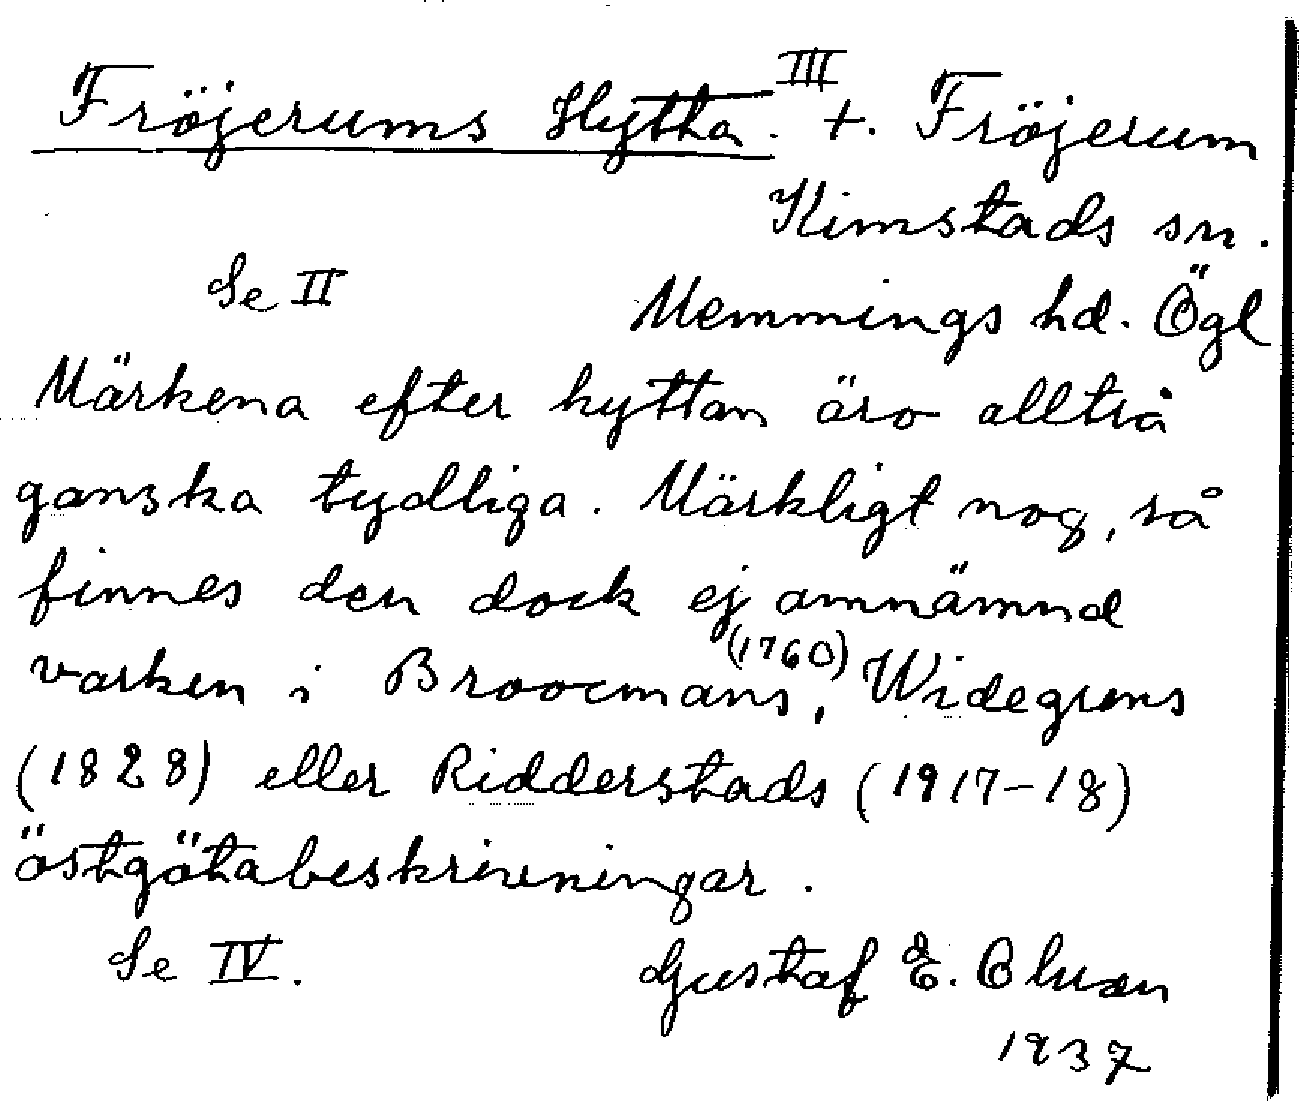 Fröjerums Hytta. III +. Fröjerum
Kimstads sn.
Se II Memmings hd. Ögl
Märkena efter hyttan äro alltrå
ganska tydliga. Märkligt nog, så
finnes den dock ej omnämnd
varken i Broocmans (1760), Widegrens
(1828) eller Ridderstads (1917-18)
östgötabeskrivningar.
Se IV. Gustaf E.
1937